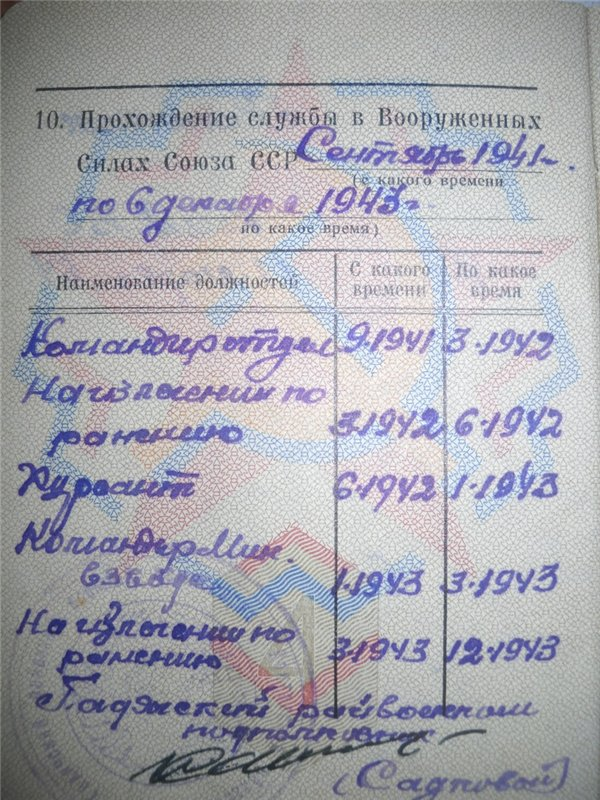 10. Прохождение службы в Вооруженных
Силах Союза ССР Сентябрь 1941 г.
(с какого времени
по 6 декабря 1943 г.
по какое время)
Наименование должностей
С какого времени
По какое время
Командир отдел 9.1941 3.1942
На излечении по
ранению 3.1942 6.1942
Курсант 6.1942 1.1943
Командир Мин.
взвода 1.1943 3.1943
На излечении по
ранению 3.1943 12.1943
райвоенком
подполковник
(Садповой)